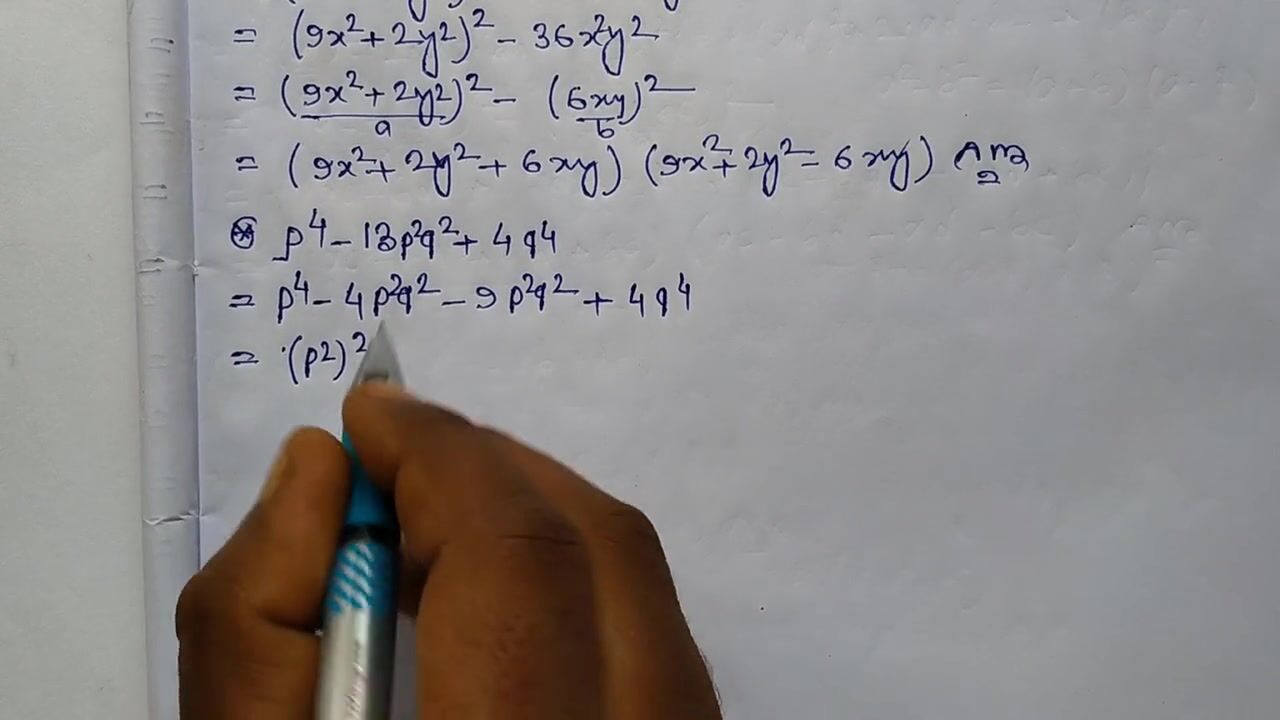 = (9x²+2y²)² - 36x²y²
= (9x²+2y²)² - (6xy)²
a b
= (9x²+2y²+6xy) (9x²+2y²-6xy) Ans
⊛ p⁴-13p²q²+4q⁴
= p⁴-4p²q²-9p²q²+4q⁴
= (p²)²